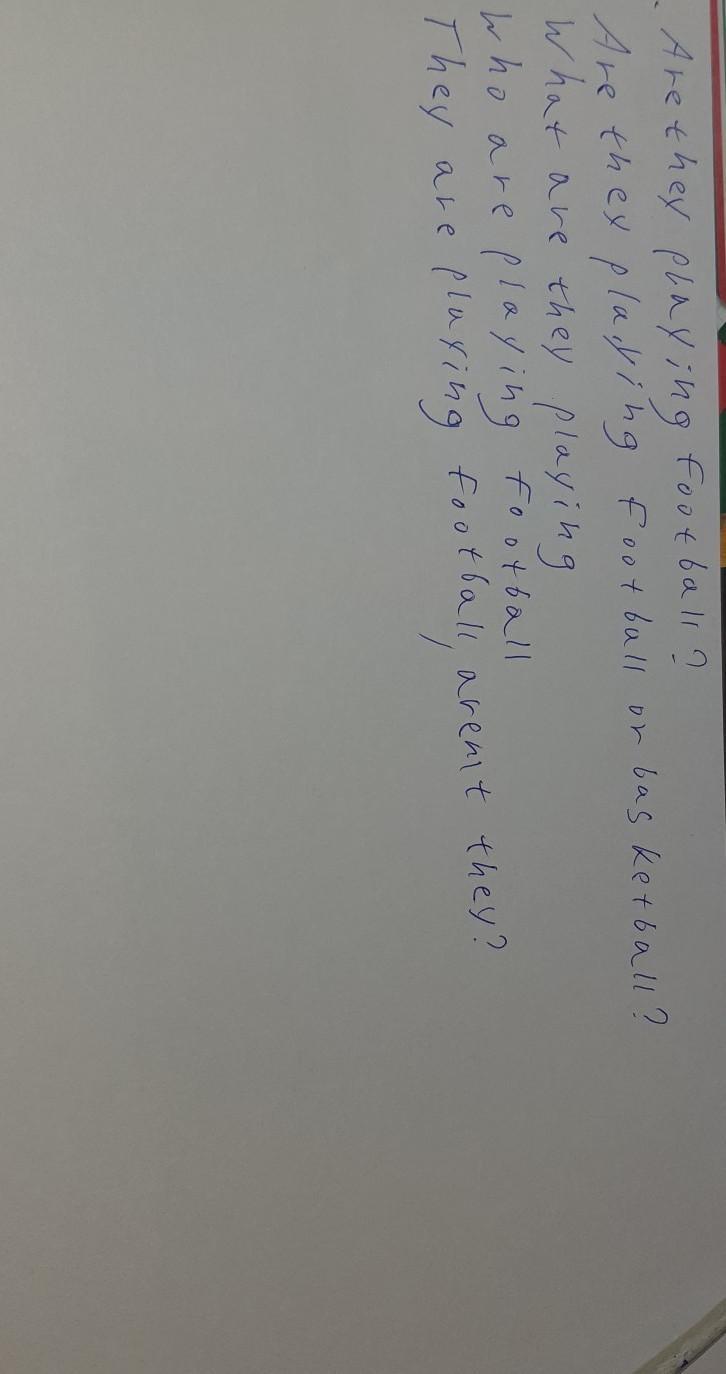 Are they playing football?
Are they playing football or basketball?
What are they playing
Who are playing football
They are playing football, arent they?